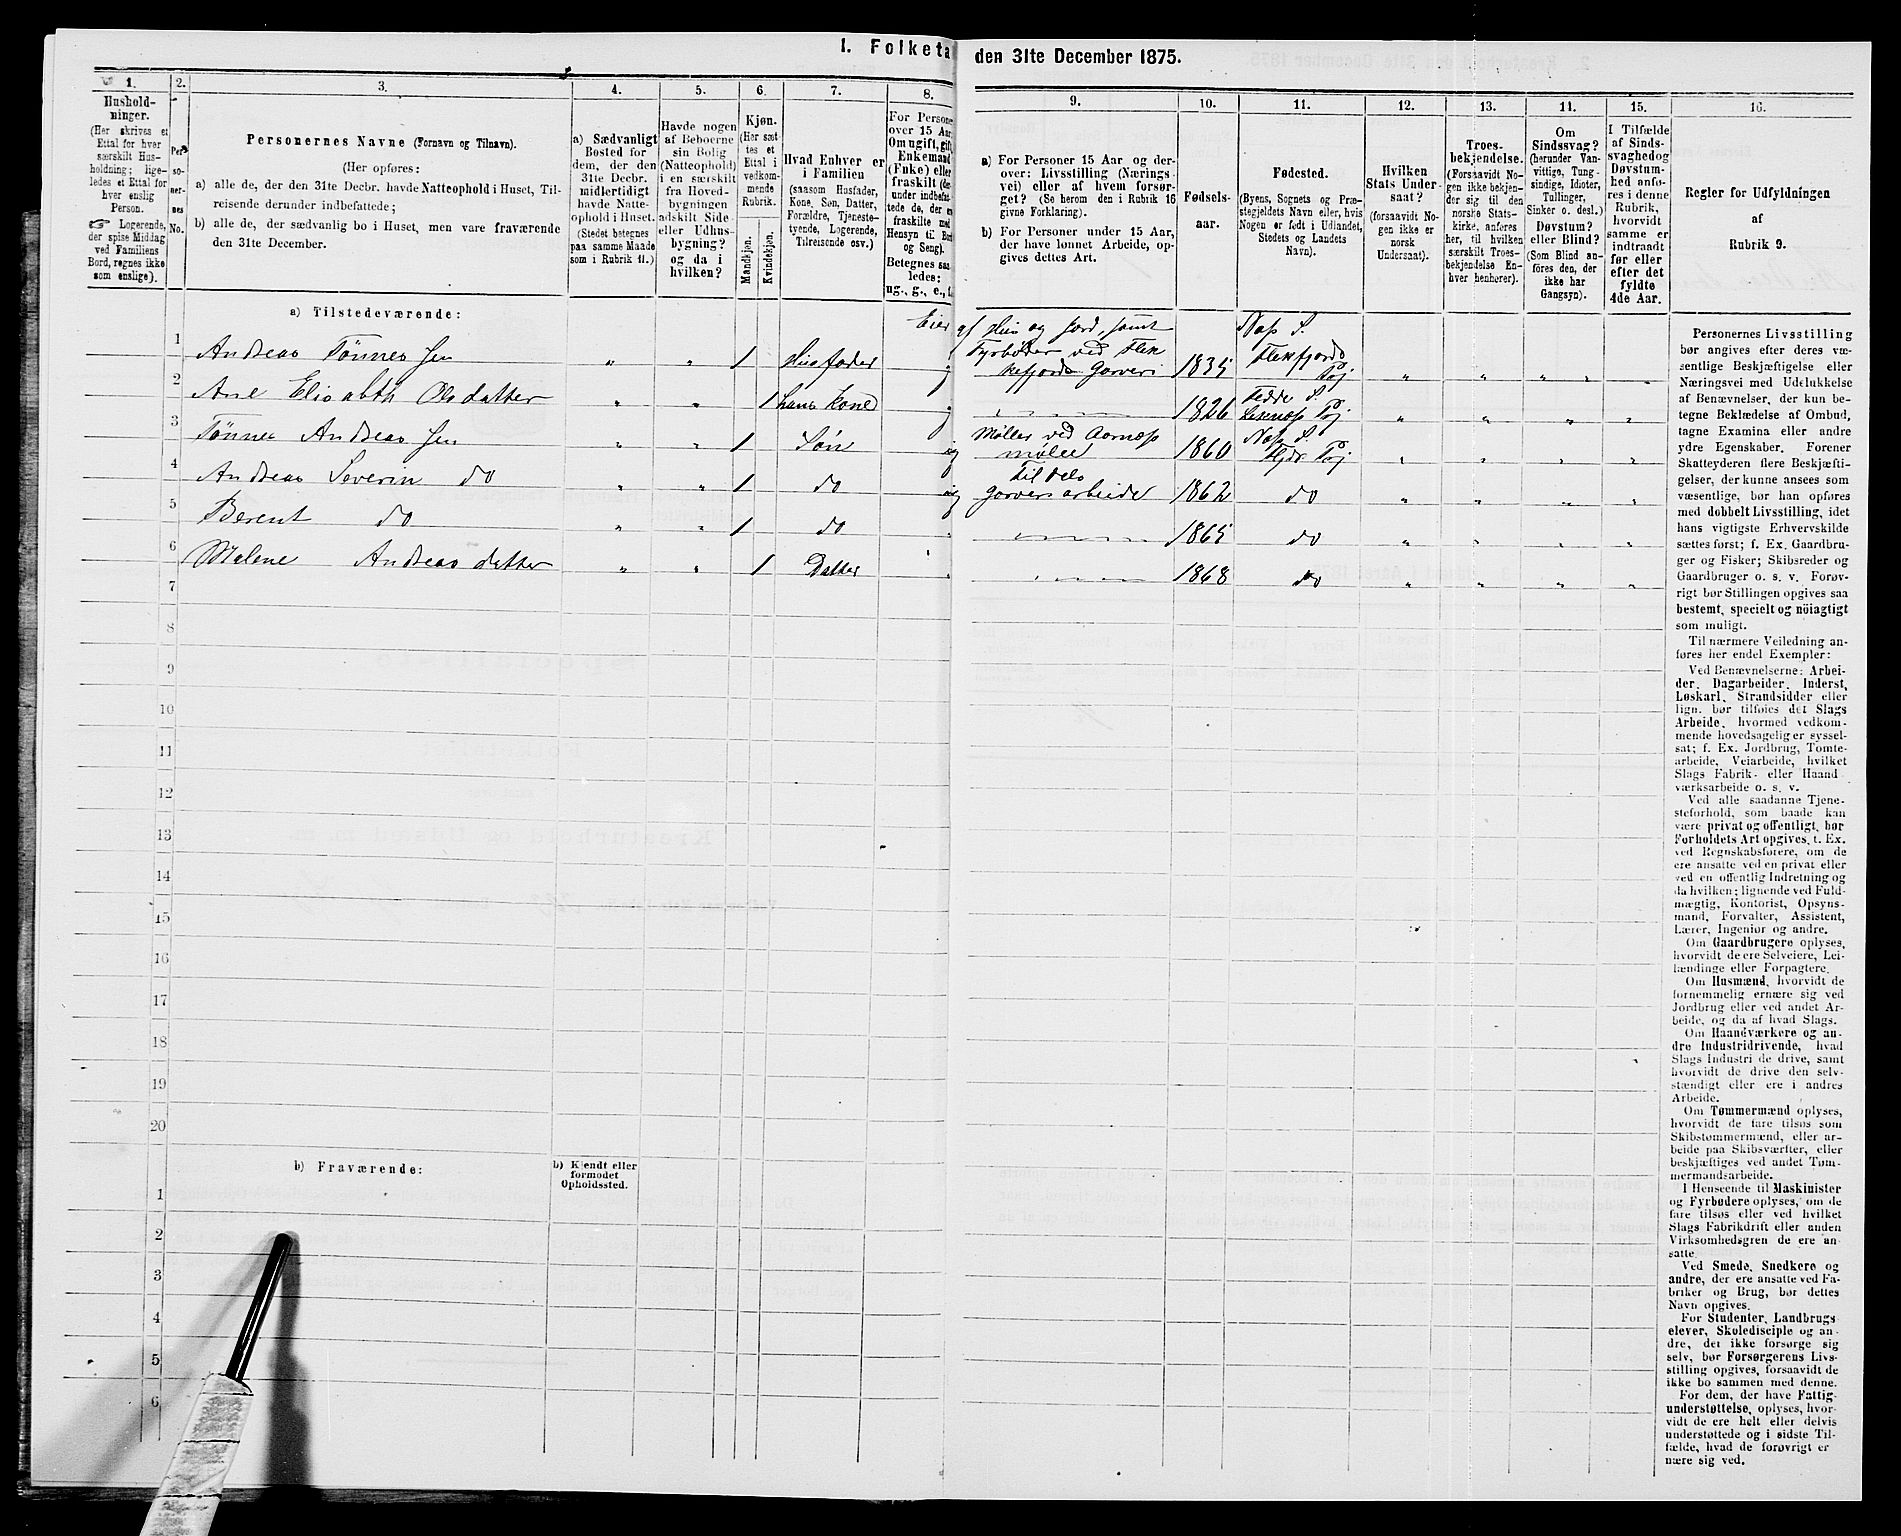 I. Folketa den 31te December 1875.
1.
Hushold-
ninger.
(Her skrives et
Ettal for hver
særskilt Hus-
holdning; lige-
ledes et Ettal for
hver enslig
Person.
☞ Logerende,
der spise Middag
ved Familiens
Bord, regnes ikke
som enslige).
2.
Per-
so-
ner-
nes
No.
3.
Personernes Navne (Fornavn og Tilnavn).
(Her opføres:
a) alle de, der den 31te Decbr. havde Natteophold i Huset, Til-
reisende derunder indbefattede;
b) alle de, der sædvanlig bo i Huset, men vare fraværende
den 31te December.
4.
a) Sædvanligt
Bosted for
dem, der den
31te Decbr.
midlertidigt
havde Natte-
ophold i Huset.
(Stedet betegnes
paa samme Maade
som i Rubrik 11.)
5.
Havde nogen
af Beboerne
sin Bolig
(Natteophold)
i en særskilt
fra Hoved-
bygningen
adskilt Side-
eller Udhus-
bygning?
og da i
hvilken?
6.
Kjøn.
(Her sæt-
tes et
Ettal i
vedkom-
mende
Rubrik.
Mandkjøn.
Kvindekjøn.
7.
Hvad Enhver er
i Familien
(saasom Husfader,
Kone, Søn, Datter,
Forældre, Tjeneste-
tyende, Logerende,
Tilreisende osv.)
8.
For Persone
over 15 Aar
Om ugift, gift,
Enkemand
(Enke) eller
fraskilt (der-
under indbefat-
tede de, der er
fraskilte med
Hensyn til Bord
og Seng).
Betegnes saa-
ledes:
ug., g., e., f.
9.
a) For Personer 15 Aar og der-
over: Livsstilling (Nærings-
vei) eller af hvem forsør-
get? (Se herom den i Rubrik 16
givne Forklaring).
b) For Personer under 15 Aar,
der have lønnet Arbeide, op-
gives dettes Art.
10.
Fødsels-
aar.
11.
Fødested.
(Byens, Sognets og Præ-
stegjeldets Navn eller, hvis
Nogen er født i Udlandet,
Stedets og Landets
Navn).
12.
Hvilken
Stats Under-
saat?
(forsaavidt No-
gen ikke er
norsk
Undersaat).
13.
Troes-
bekjendelse.
(Forsaavidt No-
gen ikke bekjen-
der sig til den
norske Stats-
kirke, anføres
her, til hvilken
særskilt Troes-
bekjendelse En-
hver henhører).
14.
Om
Sindssvag?
(herunder Van-
vittige, Tung-
sindige, Idioter,
Tullinger,
Sinker o. desl.)
Døvstum?
eller Blind?
(Som Blind an-
føres den, der
ikke har
Gangsyn).
15.
I Tilfælde
af Sinds-
svaghed og
Døvstum-
hed anfø-
res i denne
Rubrik,
hvorvidt
samme er
indtraadt
før eller
efter det
fyldte
4de Aar.
16.
Regler for Udfyldningen
af
Rubrik 9.
a) Tilstedeværende:
Eier af Hus og Jord, samt Næs S.
1 Andreas Tønnessen " " 1 Husfader g Fyrbøder ved Flek
kefjords Garveri 1835 Flekfjords Pgj " " " " "
2 Ane Elisabth Olsdatter " " 1 hans Kone g 1826 Fedde S.
Pgj " " " "
3 Tønnes Andreassen " " 1 Søn ug Møller ved Aarnæs
mølle 1860 Næs S.
Fljds Pgj " " " "
4 Andreas Severin do " " 1 do ug Til dels
garverarbeide 1862 do " " " "
5 Berent do " " 1 do 1865 do " " " "
6 Malene Andreasdatter " " 1 Datter " 1868 do " " " "
7
8
9
10
11
12
13
14
15
16
17
18
19
20
b) Fraværende:
b) Kjendt eller
formodet
Opholdssted.
1
2
3
4
5
6
Personernes Livsstilling
bør angives efter deres væ-
sentlige Beskjæftigelse eller
Næringsvei med Udelukkelse
af Benævnelser, der kun be-
tegne Beklædelse af Ombud,
tagne Examina eller andre
ydre Egenskaber. Forener
Skatteyderen flere Beskjæfti-
gelser, der kunne ansees som
væsentlige, bør han opføres
med dobbelt Livsstilling, idet
hans vigtigste Erhvervskilde
sættes først; f. Ex. Gaardbru-
ger og Fisker; Skibsreder og
Gaardbruger o. s. v. Forøv-
rigt bør Stillingen opgives saa
bestemt, specielt og nöiagtigt
som muligt.
Til nærmere Veiledning an-
føres her endel Exempler:
Ved Benævnelserne: Arbei-
der, Dagarbeider, Inderst,
Løskarl, Strandsidder eller
lign. bør tilføies det Slags
Arbeide, hvormed vedkom-
mende hovedsagelig er syssel-
sat; f. Ex. Jordbrug, Tomte-
arbeide, Veiarbeide, hvilket
Slags Fabrik- eller Haand-
værksarbeide o. s. v.
Ved alle saadanne Tjene-
steforhold, som baade kan
være privat og offentligt, bør
Forholdets Art opgives, f. Ex.
ved Regnskabsførere, om de
ere ansatte ved en privat eller
ved en offentlig Indretning og
da hvilken; lignende ved Fuld-
mægtig, Kontorist, Opsyns-
mand, Forvalter, Assistent,
Lærer, Ingeniør og andre.
Om Gaardbrugere oplyses,
hvorvidt de ere Selveiere, Lei-
lændinge eller Forpagtere.
Om Husmænd, hvorvidt de
fornemmelig ernære sig ved
Jordbrug eller ved andet Ar-
beide, og da af hvad Slags.
Om Haandværkere og an-
dre Industridrivende, hvad
Slags Industri de drive, samt
hvorvidt de drive den selv-
stændigt eller ere i andres
Arbeide.
Om Tømmermænd oplyses,
hvorvidt de fare tilsøs som
Skibstømmermænd, eller ar-
beide paa Skibsværfter, eller
beskjæftiges ved andet Tøm-
mermandsarbeide.
I Henseende til Maskinister
og Fyrbødere oplyses, om de
fare tilsøs eller ved hvilket
Slags Fabrikdrift eller anden
Virksomhedsgren de ere an-
satte.
Ved Smede, Snedkere og
andre, der ere ansatte ved Fa-
briker og Brug, bør dettes
Navn opgives.
For Studenter, Landbrugs-
elever, Skoledisciple og an-
dre, det ikke forsørge sig
selv, bør Forsørgerens Livs-
stilling opgives, forsaavidt de
ikke bo sammen med denne.
For dem, der have Fattig-
understøttelse, oplyses, hvor-
vidt de ere helt eller delvis
understøttede og i sidste Til-
fælde, hvad de forøvrigt er
nære sig ved.